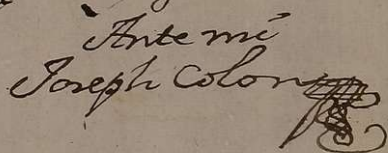 Ante mi
Joseph Colon